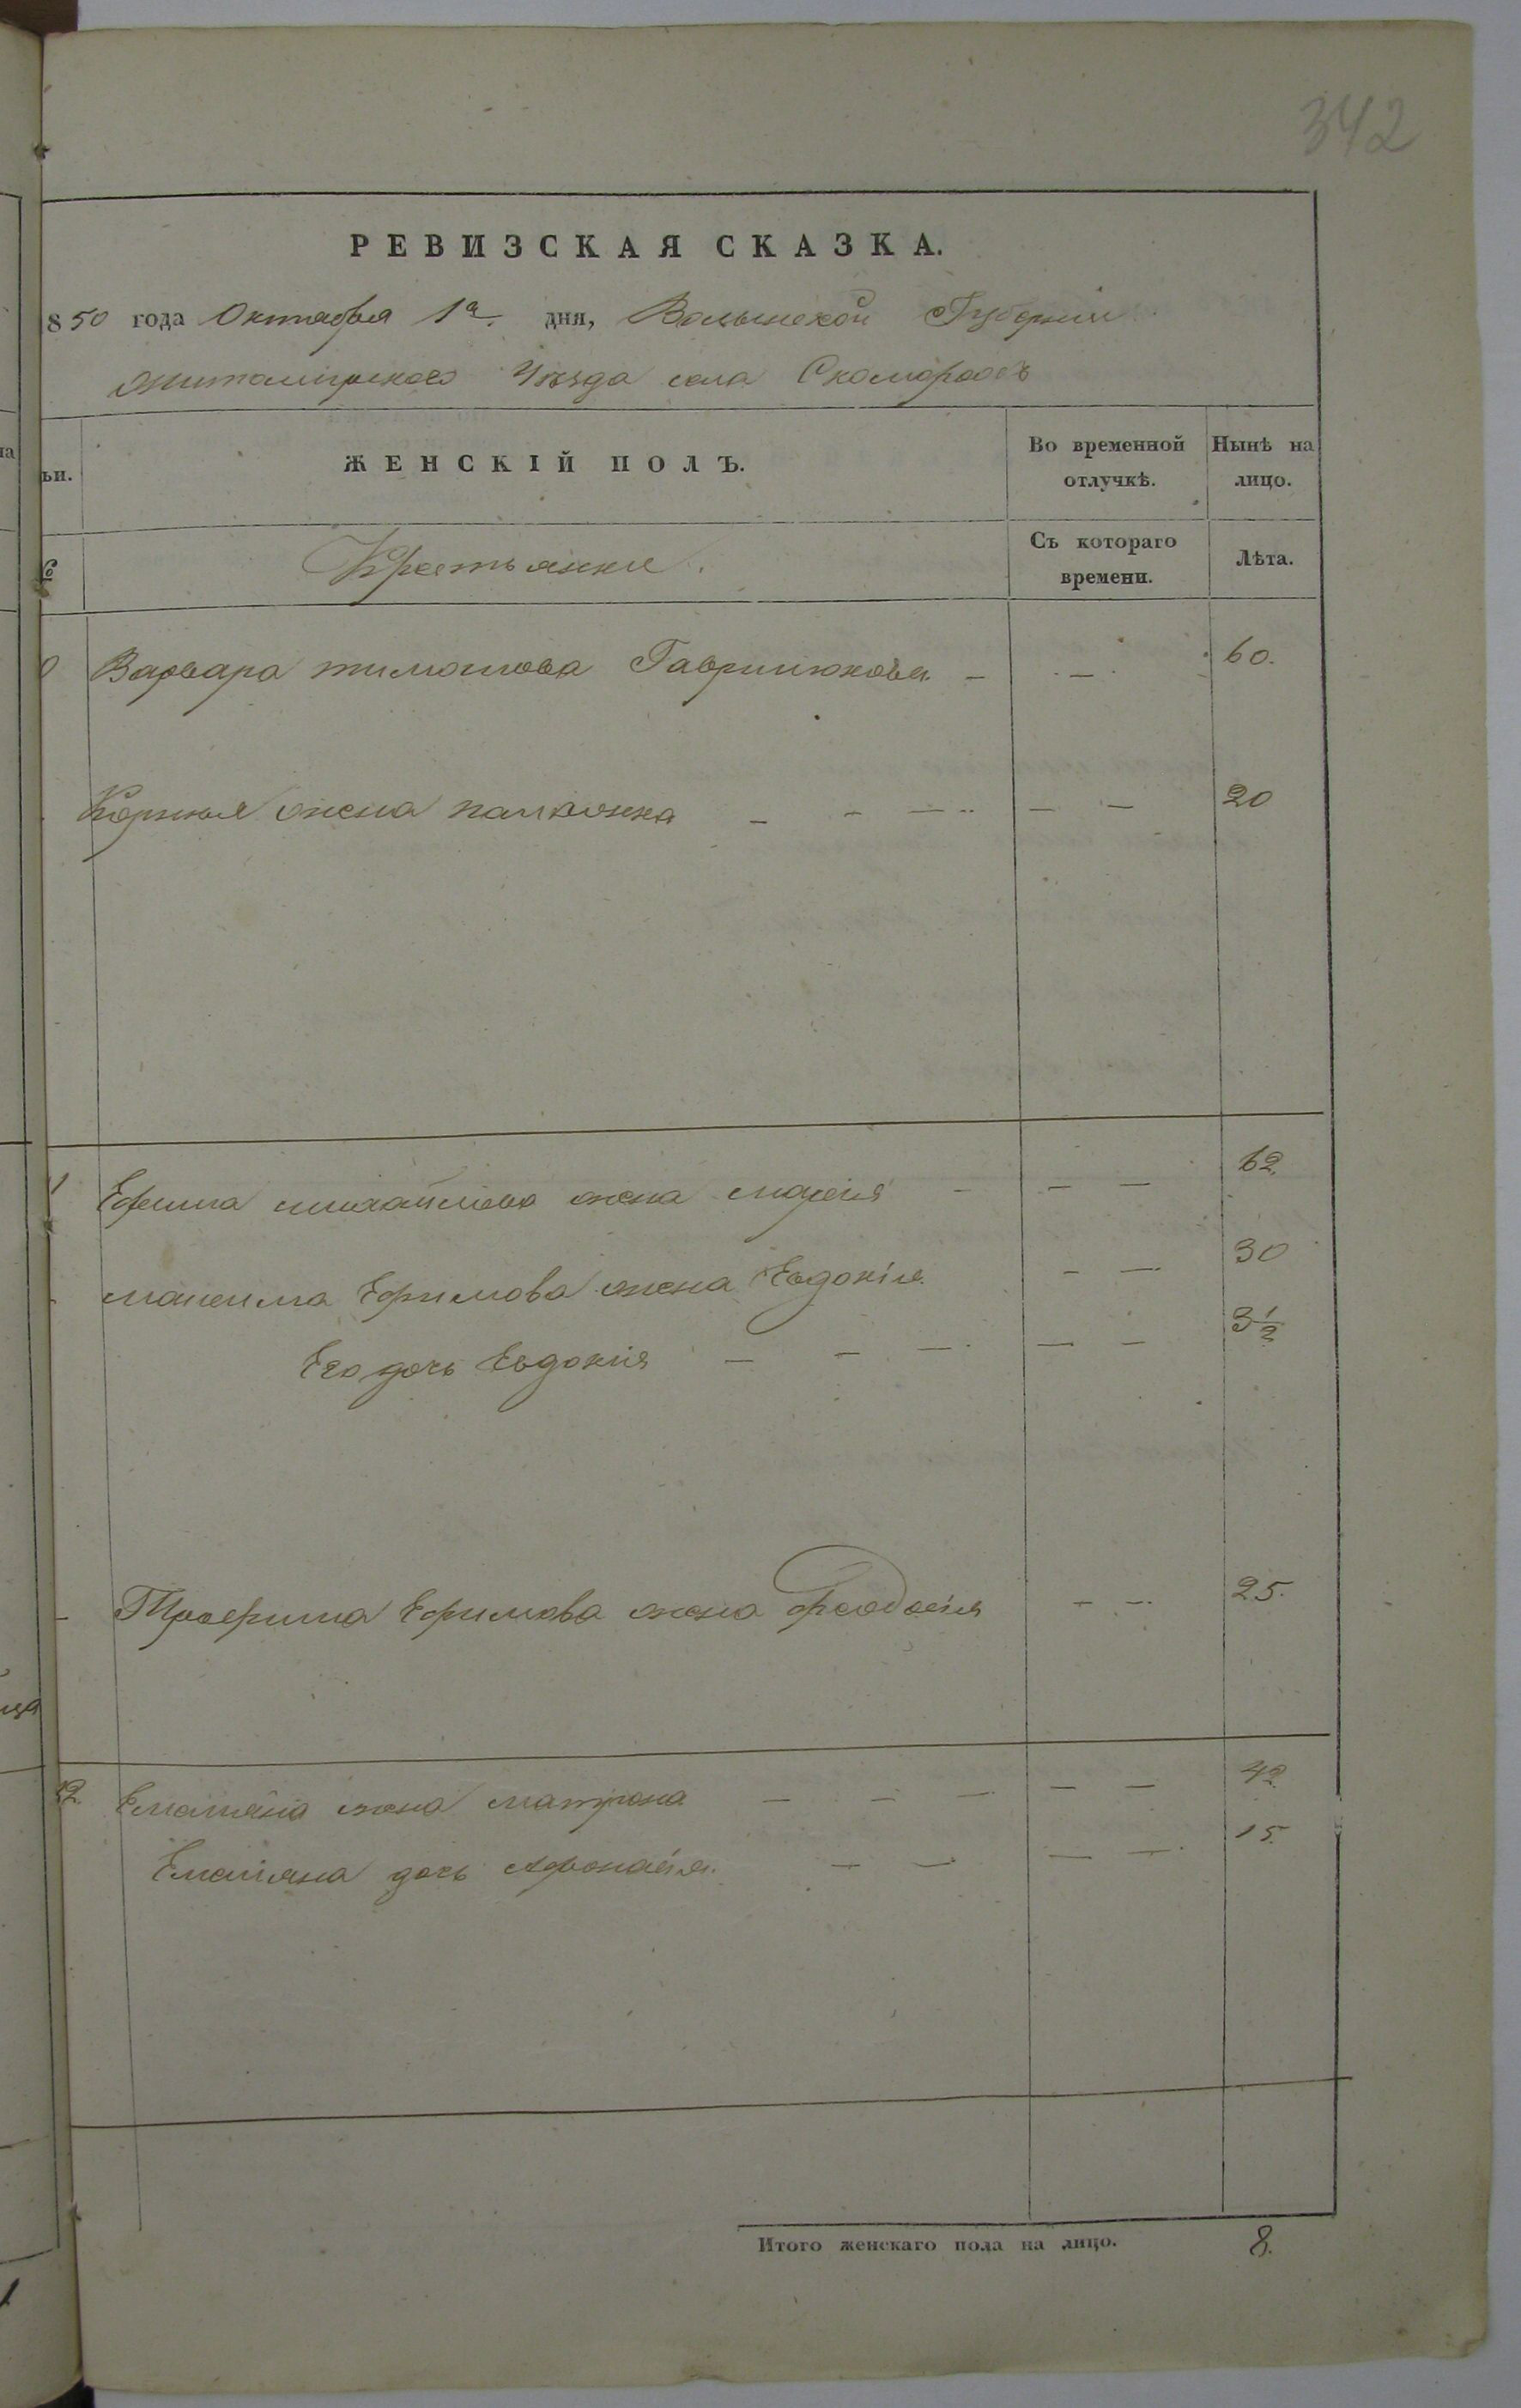 342
РЕВИЗСКАЯ СКАЗКА.
850 года Октября 1го. дня, Волынской Губерніи
Житомирского Уѣзда села Скомороховъ
ьи. ЖЕНСКІЙ ПОЛЪ. Во временной отлучкѣ. Нынѣ на лицо.
№ Крестьянки. Съ котораго времени. Лѣта.
0 Варвара тимошова Гаврилюкова. - - 60.
Корнія жена - - - - - 20
1 Ефима михайлова жена марія - - - 62
максима Ефимова жена Евдокія - - 30
Его дочь Евдокія - - - - - 3 1/2
- Трофима Ефимова жена Феодосія - - 25.
12. Емелiана жена матрона - - - - - 42
Емелiана дочь Афонасія. - - - - 15.
Итого женскаго пола на лицо. 8.